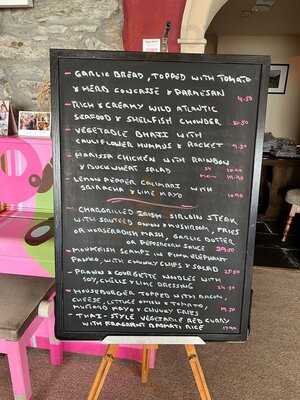 - GARLIC BREAD, TOPPED WITH TOMATO
& HERB CONCASSE & PARMESAN
- RICH & CREAMY WILD ATLANTIC
SEAFOOD & SHELLFISH CHOWDER
- VEGETABLE BHAJI WITH
CAULIFLOWER HUMMUS & ROCKET
- HARISSA CHICKEN WITH RAINBOW
& BUCKWHEAT SALAD
LEMON PEPPER CALIMARI WITH
SRIRACHA & LIME MAYO
- CHARGRILLED IRISH SIRLOIN STEAK
WITH SAUTEED ONION & MUSHROOM, FRIES
OR HORSERADISH MASH, GARLIC BUTTER
OR PEPPERCORN SAUCE
- MONKFISH SCAMPI IN PINK ELEPHANT
PANKO, WITH CHUNKY CHIPS & SALAD
- PRAWN & COURGETTE NOODLES WITH
SOY, CHILLI & LIME DRESSING
- HOUSEBURGER TOPPED WITH BACON,
CHEESE, LETTUCE ONION & TOMATO,
MUSTARD MAYO & CHUNKY CHIPS
- THAI-STYLE VEGETABLE RED CURRY
WITH FRAGRANT BASMATI RICE